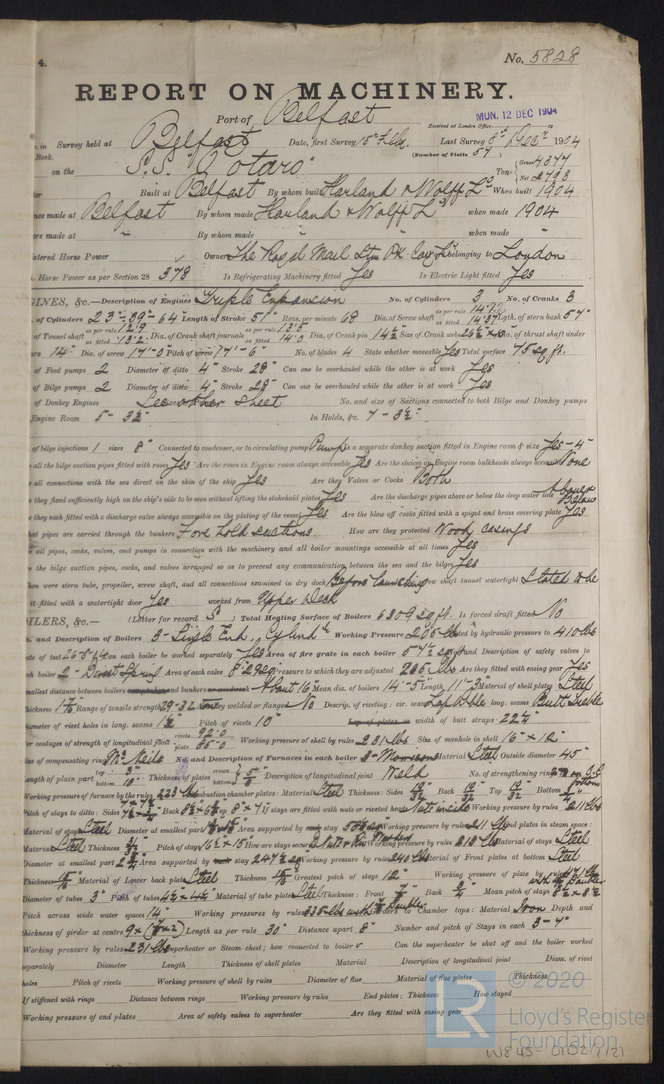 4. No. 5828
REPORT ON MACHINERY.
Port of Belfast
Received at London Office MON. 12 DEC 1904
Survey held at Belfast Date, first Survey 10th Feb. Last Survey 8th Decr 1904
Book. (Number of Visits 57
on the S.S. "Potaro" Tons Gross 4377 Net 2793
Built at Belfast By whom built Harland & Wolff Ld When built 1904
made at Belfast By whom made Harland & Wolff Ld when made 1904
made at " By whom made " when made "
Horse Power Owners The Royal Mail Stm Pkt Coy Ld belonging to London
Horse Power as per Section 28 378 Is Refrigerating Machinery fitted Yes Is Electric Light fitted Yes
INES, &c.—Description of Engines Triple Expansion No. of Cylinders 3 No. of Cranks 3
of Cylinders 23"-39"-64" Length of Stroke 51" Revs. per minute 68 Dia. of Screw shaft as per rule as fitted Lgth. of stern bush 57"
of Tunnel shaft as per rule 12.9 as fitted Dia. of Crank shaft journals as per rule 13.5 as fitted 14.0 Dia. of Crank pin Size of Crank webs Dia. of thrust shaft under
14" Dia. of screw 17'-0" Pitch of screw 17'-6" No. of blades 4 State whether moveable Yes Total surface 75 sq ft.
of Feed pumps 2 Diameter of ditto 4" Stroke 28" Can one be overhauled while the other is at work Yes
of Bilge pumps 2 Diameter of ditto 4" Stroke 28" Can one be overhauled while the other is at work Yes
of Donkey Engines See other sheet No. and size of Suctions connected to both Bilge and Donkey pumps
Engine Room 5 - 3½" In Holds, &c. 7 - 3½"
of bilge injections 1 sizes 8" Connected to condenser, or to circulating pump Pump Is a separate donkey suction fitted in Engine room & size Yes - 4"
all the bilge suction pipes fitted with roses Yes Are the roses in Engine room always accessible Yes Are the sluices on Engine room bulkheads always accessible None
all connections with the sea direct on the skin of the ship Yes Are they Valves or Cocks Both
they fixed sufficiently high on the ship's side to be seen without lifting the stokehold plates Yes Are the discharge pipes above or below the deep water line Above & Below
they each fitted with a discharge valve always accessible on the plating of the vessel Yes Are the blow off cocks fitted with a spigot and brass covering plate Yes
pipes are carried through the bunkers Fore hold suctions How are they protected Wood casings
all pipes, cocks, valves, and pumps in connection with the machinery and all boiler mountings accessible at all times Yes
the bilge suction pipes, cocks, and valves arranged so as to prevent any communication between the sea and the bilges Yes
were stern tube, propeller, screw shaft, and all connections examined in dry dock Before launching shaft tunnel watertight Stated to be
fitted with a watertight door Yes worked from Upper Deck
OILERS, &c.— (Letter for record S) Total Heating Surface of Boilers 6309 sq ft. Is forced draft fitted No
and Description of Boilers 3 - Single End., Cylindl Working Pressure 205 lbs by hydraulic pressure to 410 lbs
of test Can each boiler be worked separately Yes Area of fire grate in each boiler and Description of safety valves to
boiler 2 - Direct Spring Area of each valve pressure to which they are adjusted Are they fitted with easing gear Yes
smallest distance between boilers and bunkers About 16" Mean dia. of boilers 14'-5" Length 11'-3" Material of shell plates Steel
Thickness Range of tensile strength 29-32 Are they welded or flanged No Descrip. of riveting: cir. seams Lap long. seams Butt Treble
diameter of rivet holes in long. seams Pitch of rivets 10" width of butt straps 22¼"
centages of strength of longitudinal joint rivets 92.0 plate 85.0 Working pressure of shell by rules 231 lbs Size of manhole in shell 16" x 12"
of compensating ring McNeils No. and Description of Furnaces in each boiler 3 - Morisons Material Steel Outside diameter 45"
Length of plain part top bottom Thickness of plates crown bottom Description of longitudinal joint Weld No. of strengthening rings
Working pressure of furnace by the rules 223 lbs Combustion chamber plates: Material Steel Thickness: Sides 19/32 Back 19/32 Top 19/32 Bottom ¾
Pitch of stays to ditto: Sides Back top If stays are fitted with nuts or riveted heads Nuts inside Working pressure by rules
Material of stays Steel Diameter at smallest part Area supported by each stay Working pressure by rules 211 lbs End plates in steam space:
Material Steel Thickness Pitch of stays How are stays secured Working pressure by rules Material of stays Steel
Diameter at smallest part Area supported by each stay Working pressure by rules Material of Front plates at bottom Steel
Thickness 15/16 Material of Lower back plate Steel Thickness 15/16 Greatest pitch of stays 12" Working pressure of plate by rules
Diameter of tubes 3" Pitch of tubes Material of tube plates Steel Thickness: Front Back ¾ Mean pitch of stays
Pitch across wide water spaces 14" Working pressures by rules Girders to Chamber tops: Material Iron Depth and
thickness of girder at centre Length as per rule 30" Distance apart 8" Number and pitch of Stays in each 3 - 7"
Working pressure by rules 231 lbs Superheater or Steam chest; how connected to boiler Can the superheater be shut off and the boiler worked
separately Diameter Length Thickness of shell plates Material Description of longitudinal joint Diam. of rivet
holes Pitch of rivets Working pressure of shell by rules Diameter of flue Material of flue plates Thickness
If stiffened with rings Distance between rings Working pressure by rules End plates: Thickness How stayed
Working pressure of end plates Area of safety valves to superheater Are they fitted with easing gear
© 2020
Lloyd's Register
Foundation
W845-0102 1/2